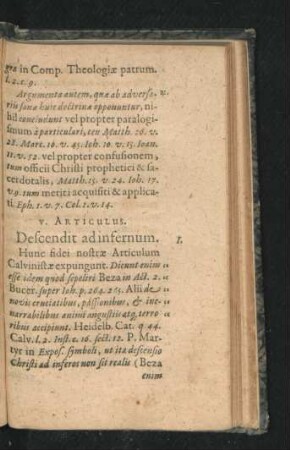 græ in Comp. Theologiæ patrum.
l. 2. c. 9.
Argumenta autem, quæ ab adversa- v.
riis sanæ huic doctrinæ opponuntur, ni-
hil concludunt vel propter paralogi-
smum à particulari, ceu Matth. 26. v.
28. Marc. 10. v. 45. Ioh. 10. v. 15. Ioan.
11. v. 52. vel propter confusionem,
tum officii Christi prophetici & sa-
cerdotalis, Matth. 15. v. 24. Ioh. 17.
v. 9. tum meriti acquisiti & applica-
ti. Eph. 1. v. 7. Col. 1. v. 14.
V. ARTICULUS.
Descendit ad infernum. I.
Hunc fidei nostræ Articulum
Calvinistæ expungunt. Dicunt enim
esse idem quod sepeliri Beza in Act. 2.
Bucer. super Ioh. p. 264. 265. Alii de
novis cruciatibus, passionibus, & ine-
narrabilibus animi angustiis atq; terro-
ribus accipiunt. Heidelb. Cat. q. 44.
Calv. l. 2. Inst. c. 16. sect. 12. P. Mar-
tyr in Expos. symboli, ut ita descensio
Christi ad inferos non sit realis (Beza
enim